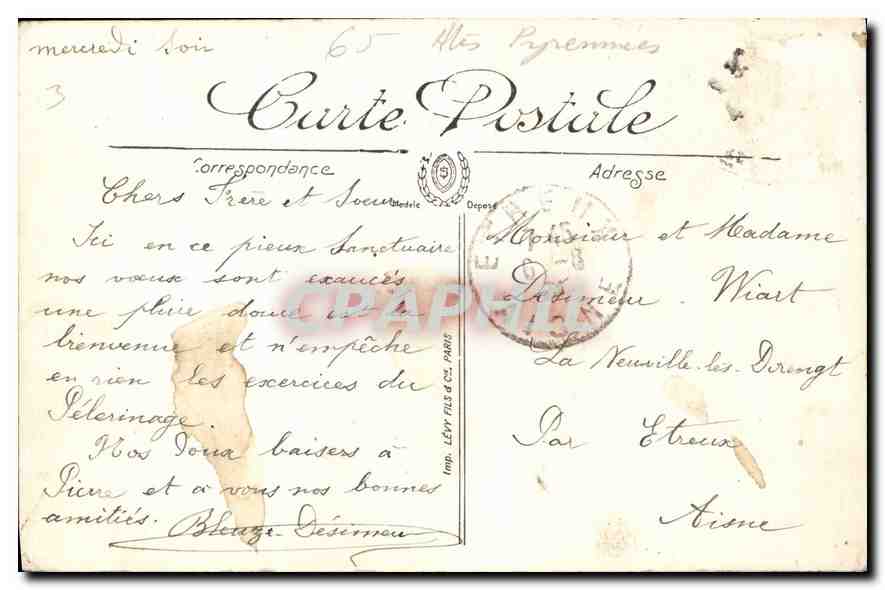 mercredi soir
65 Htes Pyrennées
3
Carte Postale
Correspondance
Adresse
Modèle Déposé
Chers Frère et Soeur
Ici en ce pieux Sanctuaire
nos vœux sont exaucés
une pluie douce est la
bienvenue et n'empêche
en rien les exercices du
Pélerinage.
Nos doux baisers à
Pierre et à vous nos bonnes
amitiés.
Bleuze-Désimeur
Imp. LÉVY FILS & Cie, PARIS
Monsieur et Madame
Désimeur-Wiart
La Neuville-les-Dorengt
Par Etreux
Aisne
CPAPHIL